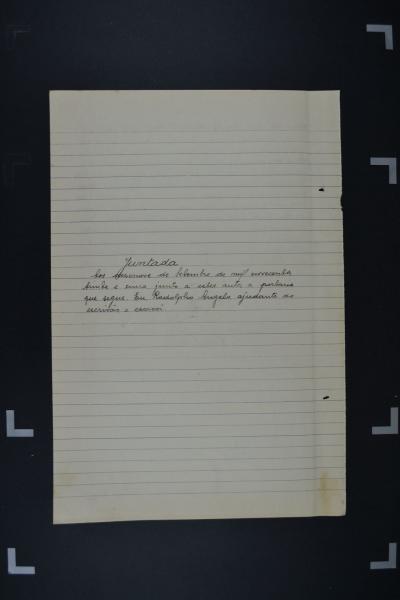 Juntada
Aos dezenove de Setembro de mil novecentos
trinta e nove junto a estes autos a portaria
que segue. Eu Rodolpho Angelo ajudante do
escrivão o escrevi